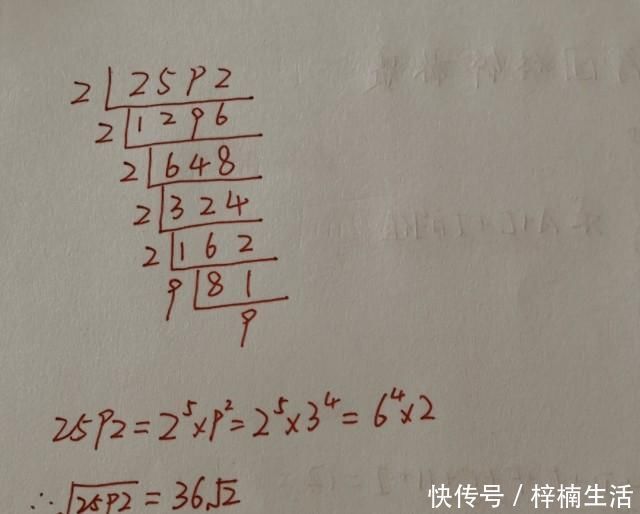 2 2592
2 1296
2 648
2 324
2 162
9 81
9
2592=2⁵×9²=2⁵×3⁴=6⁴×2
∴√2592=36√2
快传号/梓楠生活